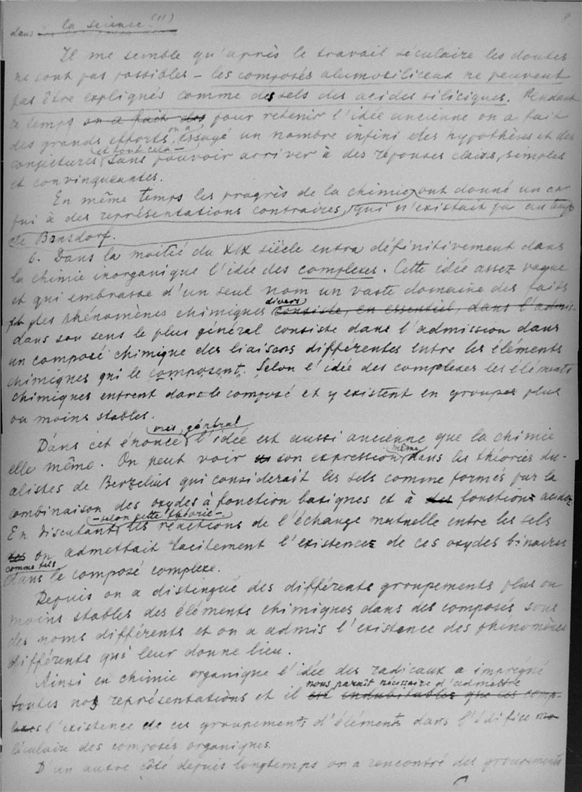 dans la science (11)
Il me semble qu'après le travail séculaire les doutes
ne sont pas possibles – les composés alumosiliceux ne peuvent
pas être expliqués comme des sels des acides siliciques. Pendant
ce temps on a fait des pour retenir l'idée ancienne on a fait
des grands efforts, on a essayé un nombre infini des hypothèses et des
conjectures, et tout cela sans pouvoir arriver à des réponses claires, simples
et convainquantes.
En même temps les progrès de la chimie ont donné un
à des représentations contraires, qui n'existait pas au
de
6. Dans la moitié du XIX siècle entra définitivement dans
la chimie inorganique l'idée des complexes. Cette idée assez vague
et qui embrasse d'un seul nom un vaste domaine des faits
des phénomènes chimiques divers consiste, en essentiel, dans l'admis
dans son sens le plus général consiste dans l'admission dans
un composé chimique des liaisons différentes entre les éléments
chimiques qui le composent. Selon l'idée des complexes les éléments
chimiques entrent dans le composé et y existent en groupes plus
ou moins stables.
Dans cet énoncé très général l'idée est aussi ancienne que la chimie
elle même. On peut voir son expression même dans les théories du-
alistes de Berzelius qui considérait les sels comme formés par la
combinaison des oxydes à fonction basiques et à fonctions acides
En discutant – selon cette théorie – les réactions de l'échange mutuelle entre les sels
on admettait facilement l'existence de ces oxydes binaires
comme tels dans le composé complexe.
Depuis on a distingué des différents groupements plus ou
moins stables des éléments chimiques dans des composés sous
des noms différents et on a admis l'existence des phénomènes
différents qui leur donne lieu.
Ainsi en chimie organique l'idée des radicaux a imprégné
toutes nos représentations et il nous paraît nécessaire d'admettre est indubitable que les comp-
l'existence de ces groupements d'éléments dans l'édifice mo-
léculaire des composés organiques.
D'un autre côté depuis longtemps on a rencontré des groupements